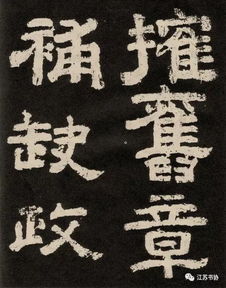 擁舊章
補缺政
江苏书协